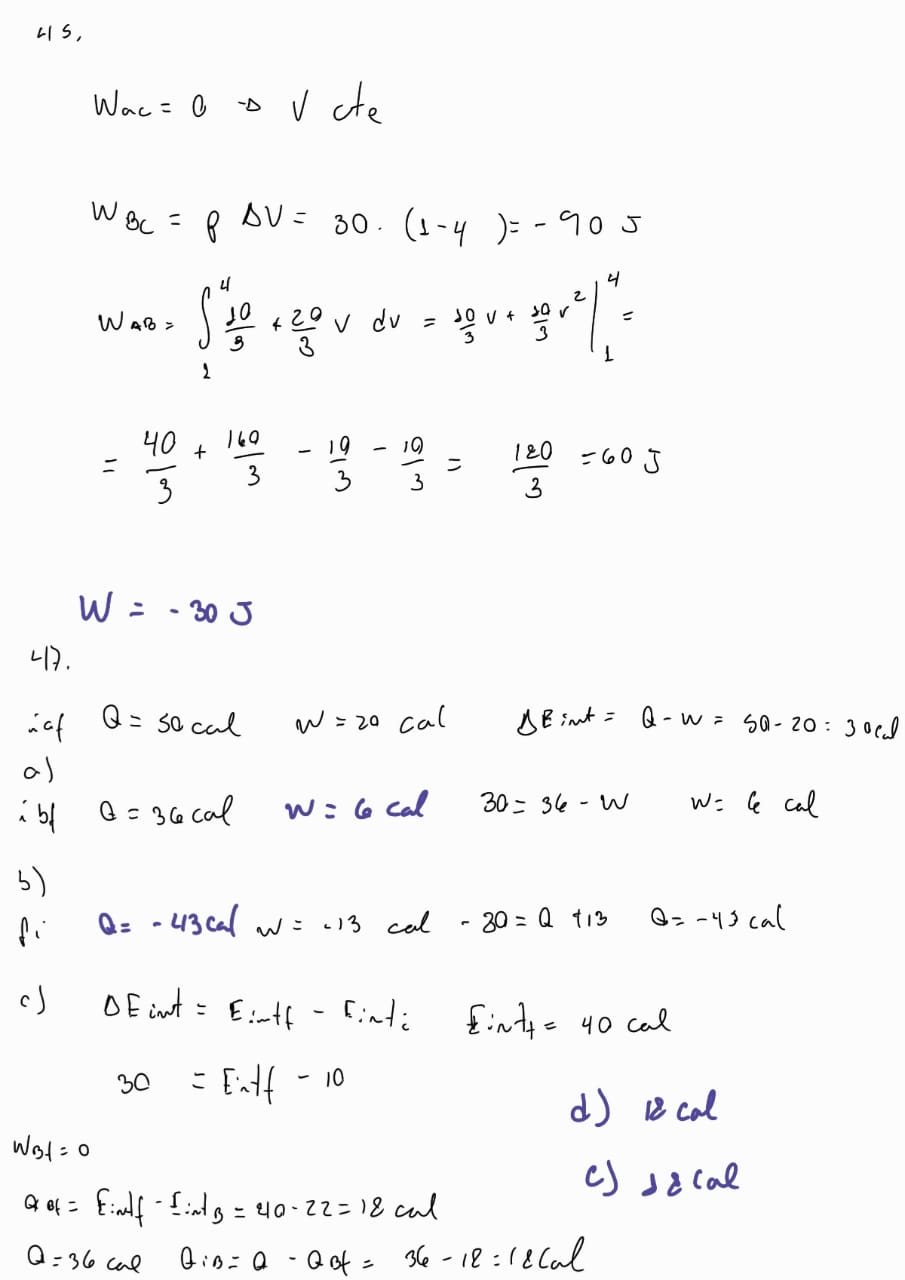 45.
Wac = 0 → V cte
W BC = p ΔV = 30. (1-4) = -90 J
W AB = ∫₁⁴ 10/3 + 20/3 V dv = 10/3 v + 10/3 v² |₁⁴ =
= 40/3 + 160/3 - 10/3 - 10/3 = 180/3 = 60 J
W = -30 J
47.
iaf Q = 50 cal W = 20 cal ΔEint = Q - W = 50 - 20 = 30 cal
a)
ibf Q = 36 cal W = 6 cal 30 = 36 - W W = 6 cal
b)
fi Q = -43 cal W = -13 cal -30 = Q +13 Q = -43 cal
c) ΔEint = Eintf - Einti Eintf = 40 cal
30 = Eintf - 10
d) 18 cal
WBf = 0
e) 18 cal
Q Bf = Eintf - Eint B = 40 - 22 = 18 cal
Q = 36 cal QiB = Q - QBf = 36 - 18 = 18 Cal